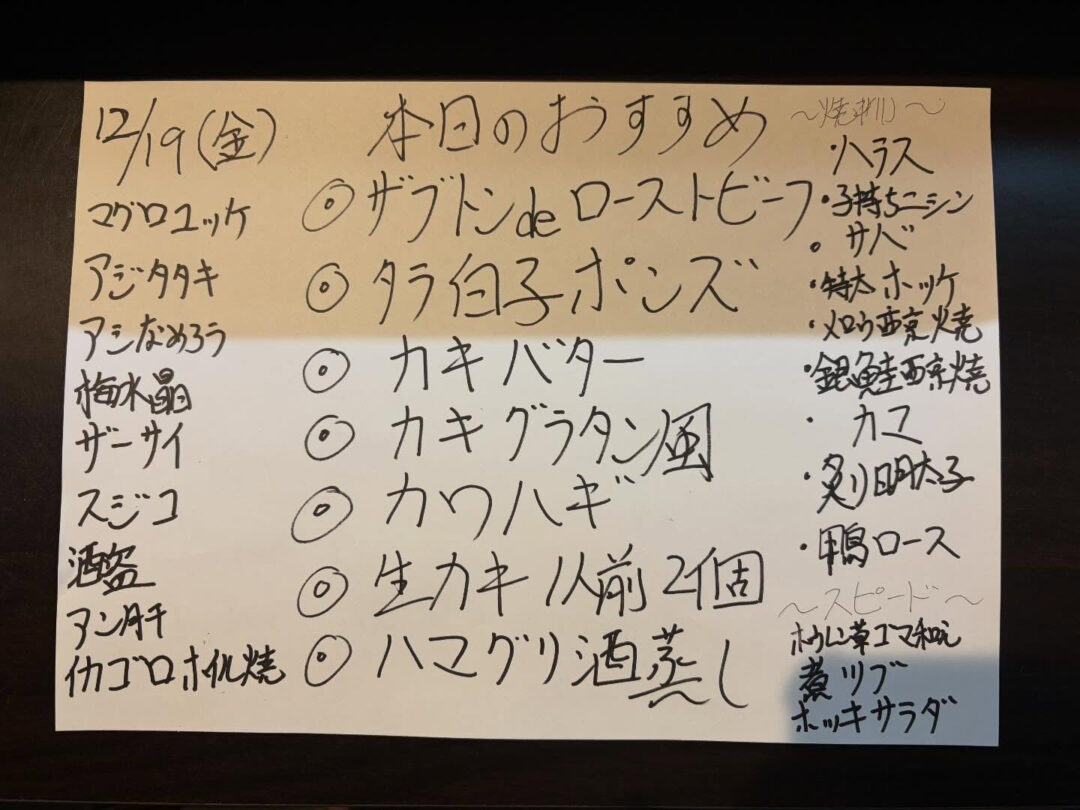 12/19(金)
マグロユッケ
アジタタキ
アジなめろう
梅水晶
ザーサイ
スジコ
酒盗
アン肝
イカゴロホイル焼
本日のおすすめ
◎ザブトンdeローストビーフ
◎タラ白子ポンズ
◎カキバター
◎カキグラタン風
◎カワハギ
◎生カキ1人前2個
◎ハマグリ酒蒸し
・ハラス
・子持ちニシン
・サバ
・特大ホッケ
・メロウ西京焼
・銀鮭西京焼
・カマ
・炙り明太子
・鴨ロース
～スピード～
煮ツブ
ホッキサラダ